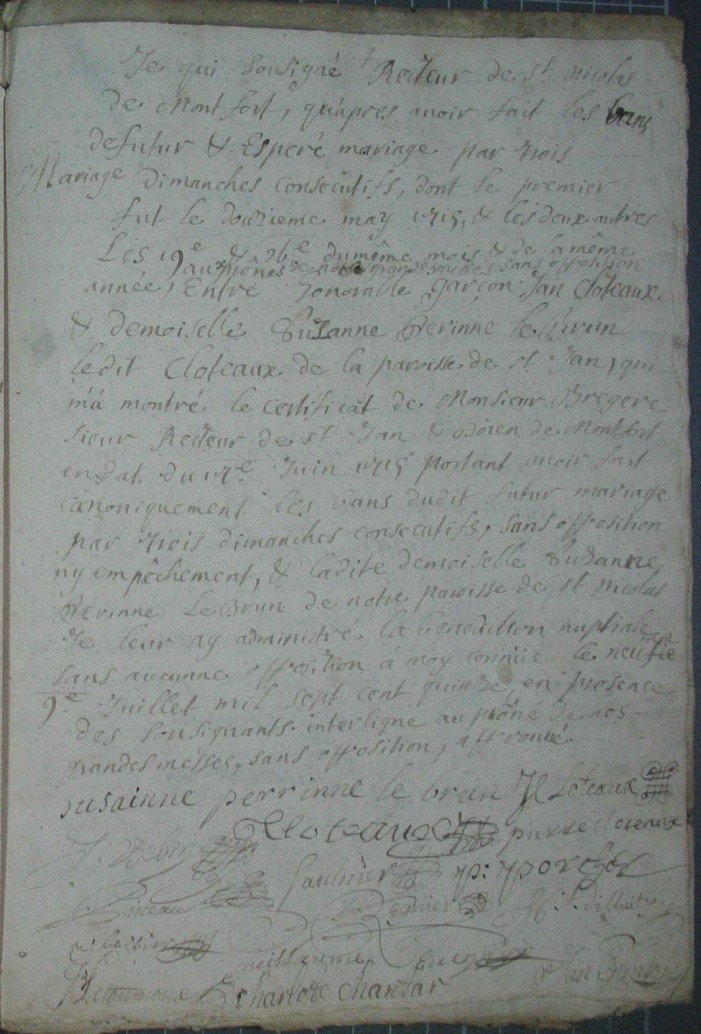 Je qui sousigné Recteur de st. nicolas
de Montfort, qu'apres auoir fait les bans
de futur & Esperé mariage par trois
Mariage dimanches consecutifs, dont le premier
fut le douzieme may 1715, & les deux autres
Les 19e & 26e du même mois & de la même
aux prônes de grandes messes sans opposition
année, Entre honorable garçon Jan Cloteaux
& demoiselle Suzanne Perinne le Brun
ledit Cloteaux de la paroisse de st. Jan, qui
m'a montré le certificat de Monsieur
sieur Recteur de st Jan & Doien de Montfort
en dat. du 17e Juin 1715 portant auoir fait
canoniquement les bans dudit futur mariage
par trois dimanches consecutifs, sans opposition
ny empêchement, & ladite demoiselle Suzanne
Perinne Le Brun de notre paroisse de st nicolas
Je leur ay administré la benediction nuptiale
sans aucunne opposition à moy connüe le neufie
9e Juillet mil sept cent quinze, en presence
des sousignants. interligne au prône de nos
grandes messes, sans opposition, approuué.
susainne perrinne le brun J Cloteaux
Cloteaux pierre cloteaux
Saulnier
guillaume
Charlote